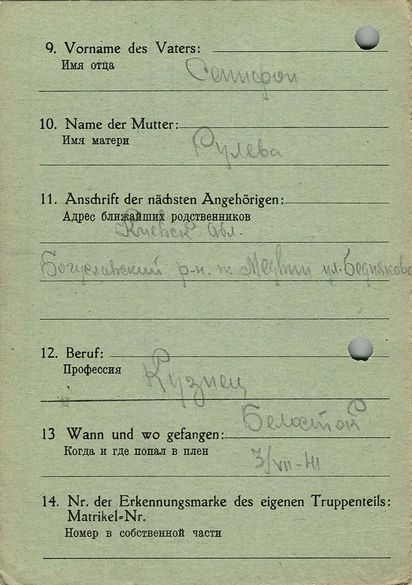 9. Vorname des Vaters:
Имя отца
10. Name der Mutter:
Имя матери
Рулева
11. Anschrift der nächsten Angehörigen:
Адрес ближайших родственников
Киевск. обл.
Богуславский р-н. м. Медвин ул. Бедняков
12. Beruf:
Профессия
Кузнец
Белосток
13 Wann und wo gefangen:
Когда и где попал в плен
3/VII-41
14. Nr. der Erkennungsmarke des eigenen Truppenteils:
Matrikel=Nr.
Номер в собственной части